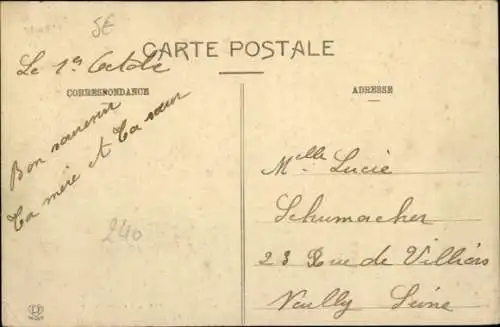 SE
CARTE POSTALE
Le 1er Octobre
CORRESPONDANCE
Bon souvenir
Ta mère et Ta sœur
240
ADRESSE
Melle Lucie
Schumacher
23 Rue de Villiers
Neuilly Seine